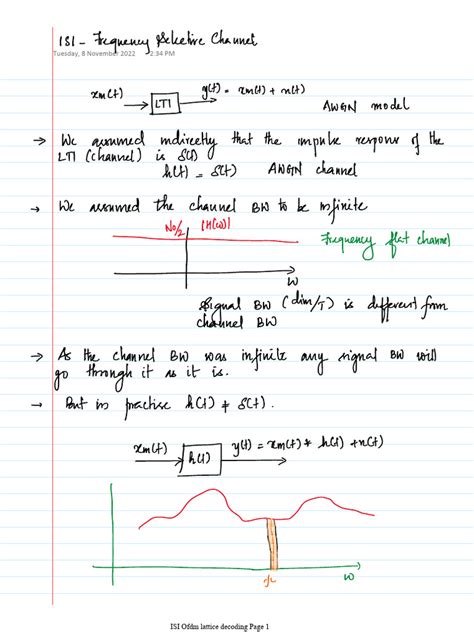 ISI - Frequency Selective Channel
Tuesday, 8 November 2022 2:34 PM
xm(t) → LTI → y(t) = xm(t) + n(t)
AWGN model
→ We assumed indirectly that the impulse response of the
LTI (channel) is δ(t)
h(t) = δ(t) AWGN channel
→ We assumed the channel BW to be infinite
No/2 |H(ω)|
Frequency flat channel
ω
Signal BW (dim/T) is different from
channel BW
→ As the channel BW was infinite any signal BW will
go through it as it is.
→ But in practise h(t) ≠ δ(t).
xm(t) → h(t) → y(t) = xm(t) * h(t) + n(t)
fc ω
ISI Ofdm lattice decoding Page 1